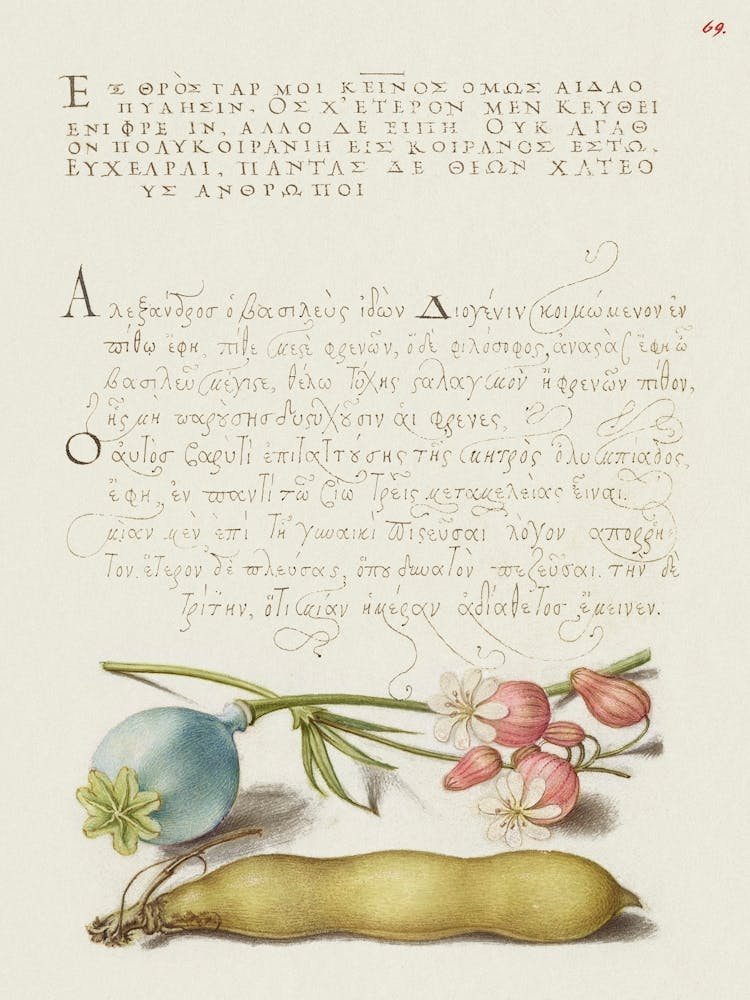 69.
ΕΣ ΘΡῸΣ ΓΑΡ ΜΟΙ ΚΕΙΝΟΣ ΟΜΩΣ ΑΙΔΑΟ
ΠΥΛΗΣΙΝ, ΟΣ Χ' ΕΤΕΡΟΝ ΜΕΝ ΚΕΥΘΕΙ
ΕΝΙ ΦΡΕ ΙΝ, ΑΛΛΟ ΔΕ ΕΙΠΗ ΟΥΚ ΑΓΑΘ
ΟΝ ΠΟΛΥΚΟΙΡΑΝΙΗ ΕΙΣ ΚΟΙΡΑΝΟΣ ΕΣΤΩ.
ΕΥΧΕΑΡΑΙ, ΠΑΝΤΑΣ ΔΕ ΘΕΩΝ ΧΑΤΕΟ
ΥΣ ΑΝΘΡΩΠΟΙ
Αλεξανδρος ὁ βασιλεὺς ἰδὼν Διογένιν κοιμώμενον ἐν
πίθῳ ἔφη, πίθε μεςὲ φρενῶν, ὅδὲ φιλόσοφος, ἀναςὰς ἔφη ὦ
βασιλεῦ μέγιςε, θέλω τύχης ςαλαγμὸν ἢ φρενῶν πίθον,
ἧς μὴ παρύσης δυςυχῦσιν ἁι φρενες,
Ο ἀυτὸς βαρὺ τί ἐπιταττύσης τῆς μητρὸς ὀλυμπιαδος,
ἔφη, ἐν παντὶ τῶ βίω τρεῖς μεταμελείας εἶναι.
μίαν μὲν ἐπὶ τῇ γυναικὶ πιςεῦσαι λόγον απορρη
τον. ἕτερον δὲ πλεύσας, ὅπυ δυνατὸν πεζεῦσαι. τὴν δὲ
τρίτην, ὅτι μίαν ἡμέραν ἀδιαθετος ἔμεινεν.